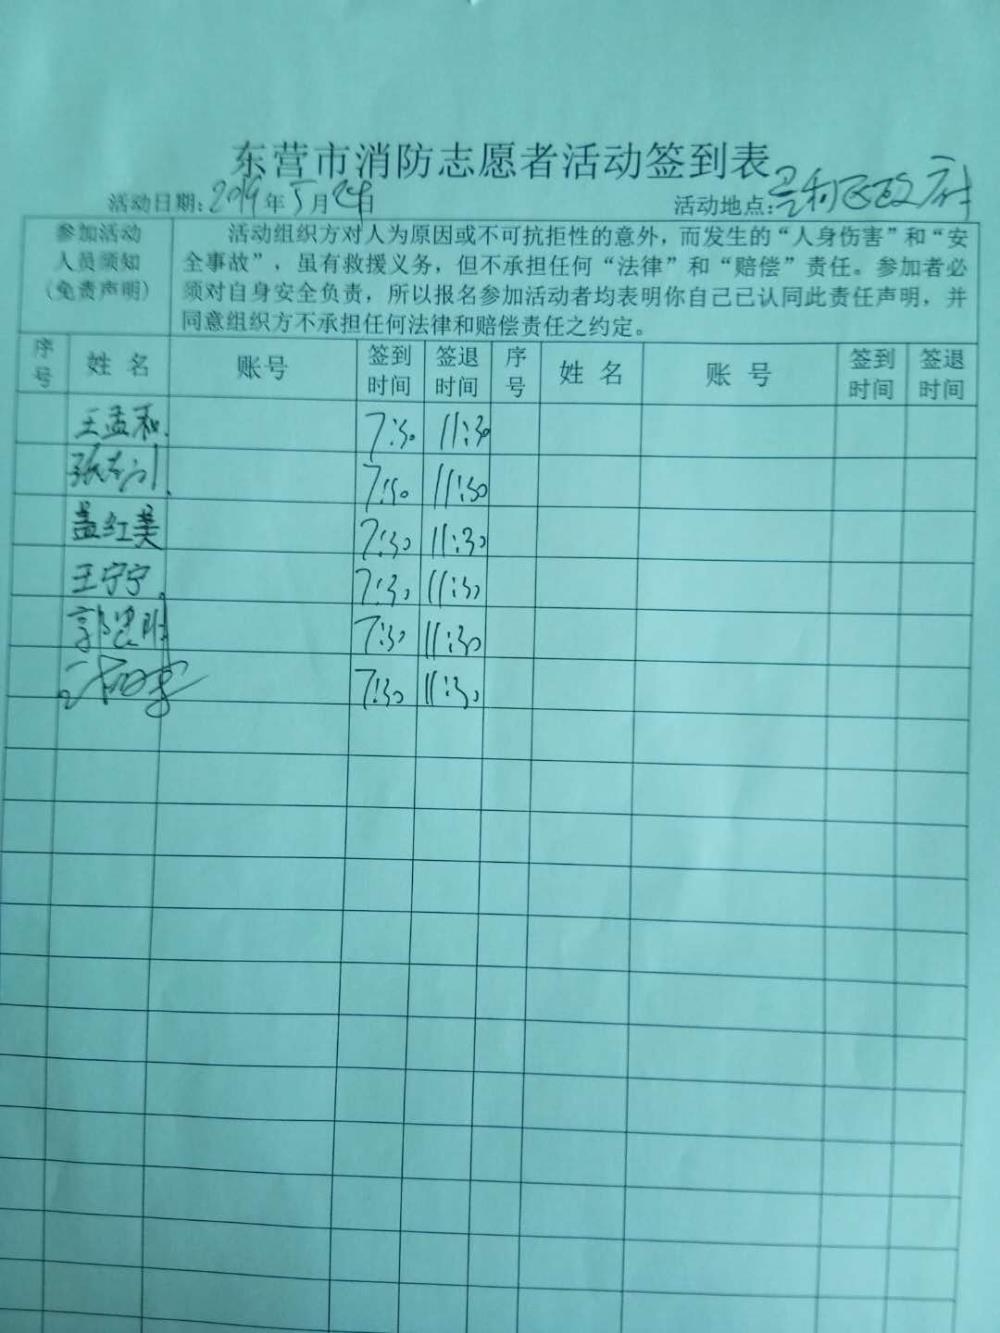 东营市消防志愿者活动签到表
活动日期:2019年5月24日 活动地点:垦利区政府
参加活动
人员须知
(免责声明)
活动组织方对人为原因或不可抗拒性的意外，而发生的“人身伤害”和“安
全事故”，虽有救援义务，但不承担任何“法律”和“赔偿”责任。参加者必
须对自身安全负责，所以报名参加活动者均表明你自己已认同此责任声明，并
同意组织方不承担任何法律和赔偿责任之约定。
序号 姓名 账号 签到时间 签退时间 序号 姓名 账号 签到时间 签退时间
王孟和 7:30 11:30
张 7:30 11:30
盖红美 7:30 11:30
王宁宁 7:30 11:30
郭 明 7:30 11:30
7:30 11:30